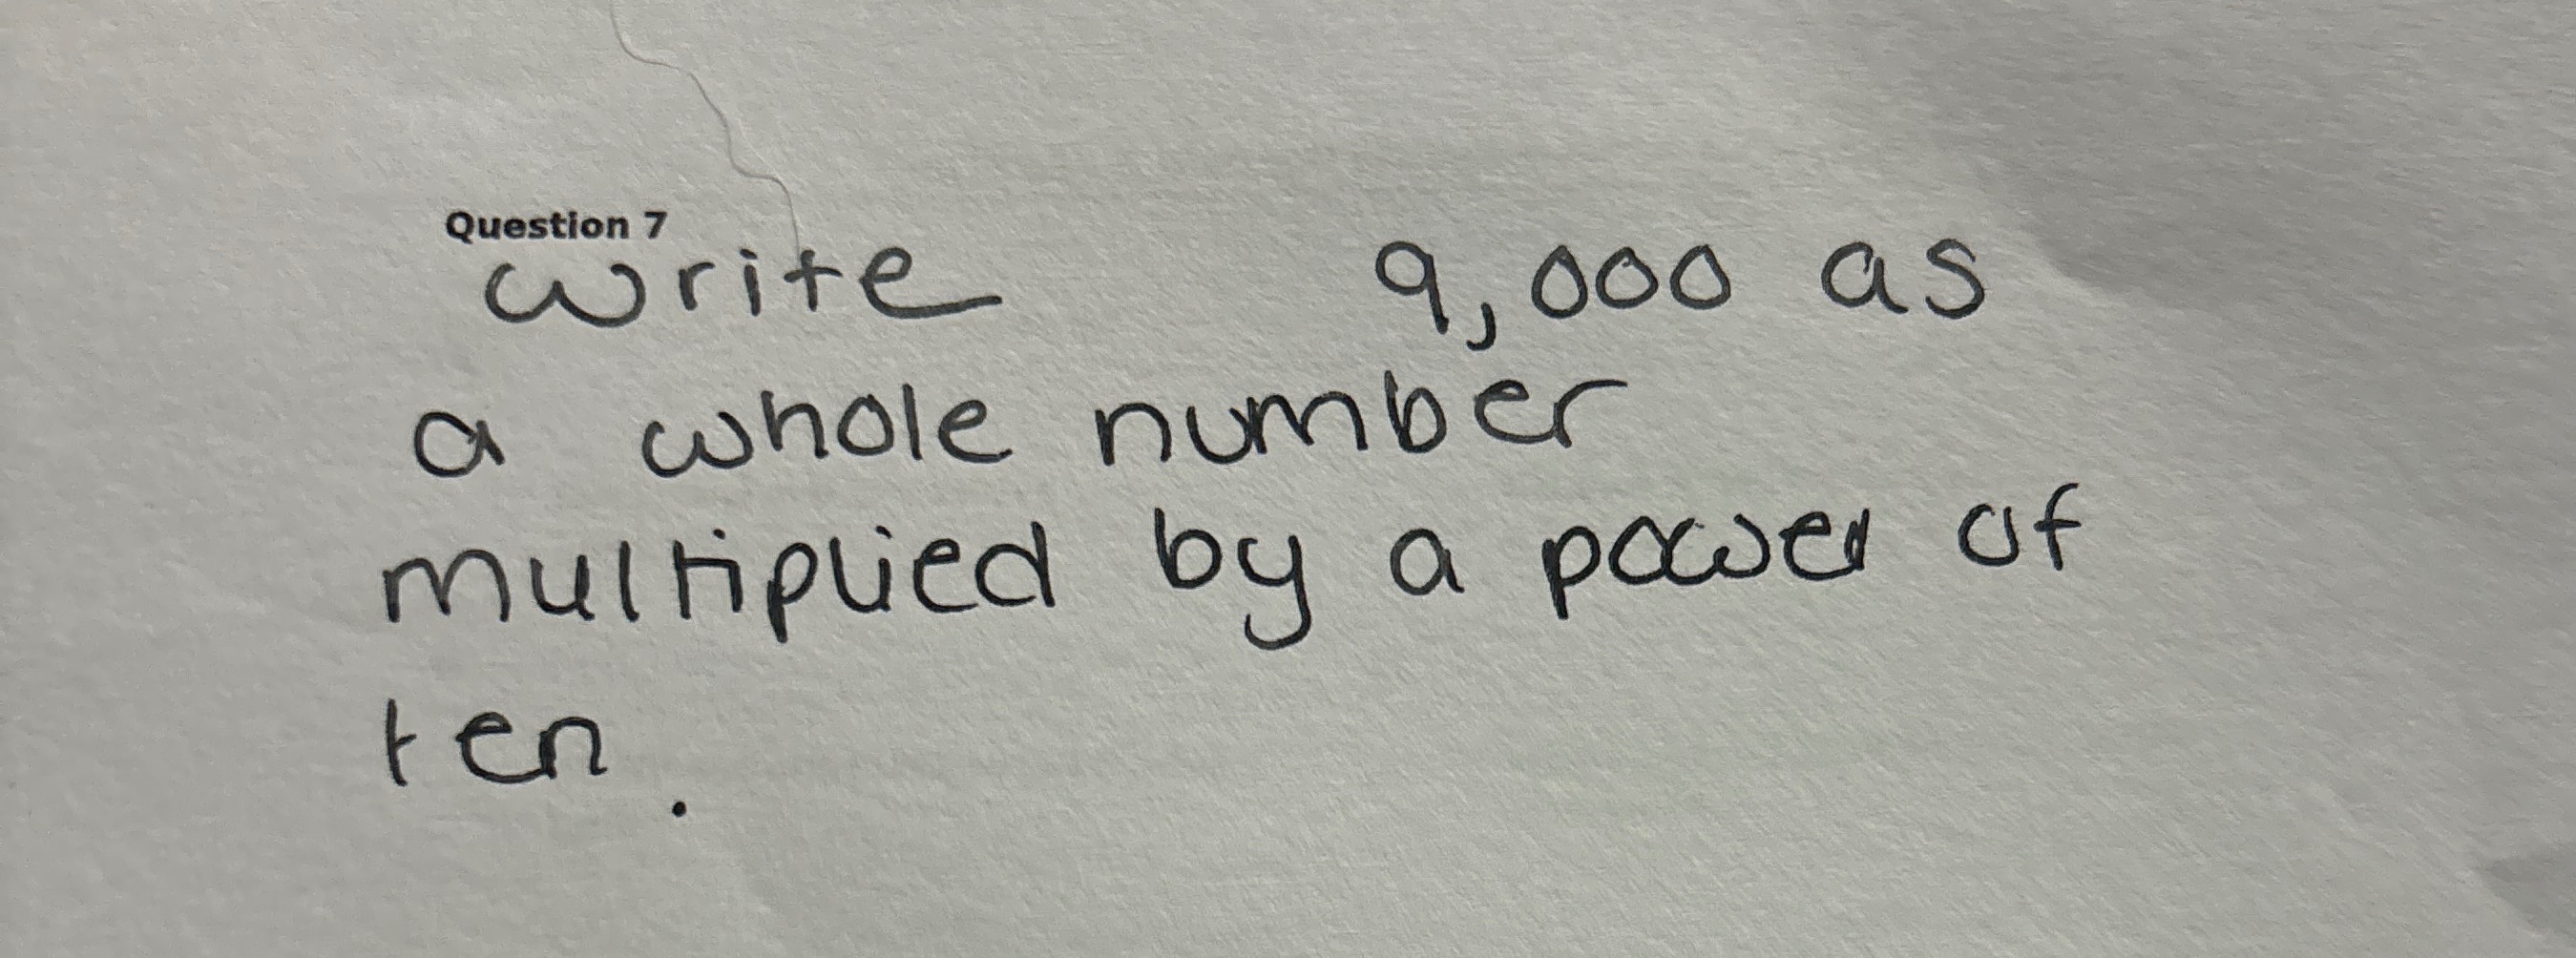 Question 7
write 9,000 as
a whole number
multiplied by a power of
ten.